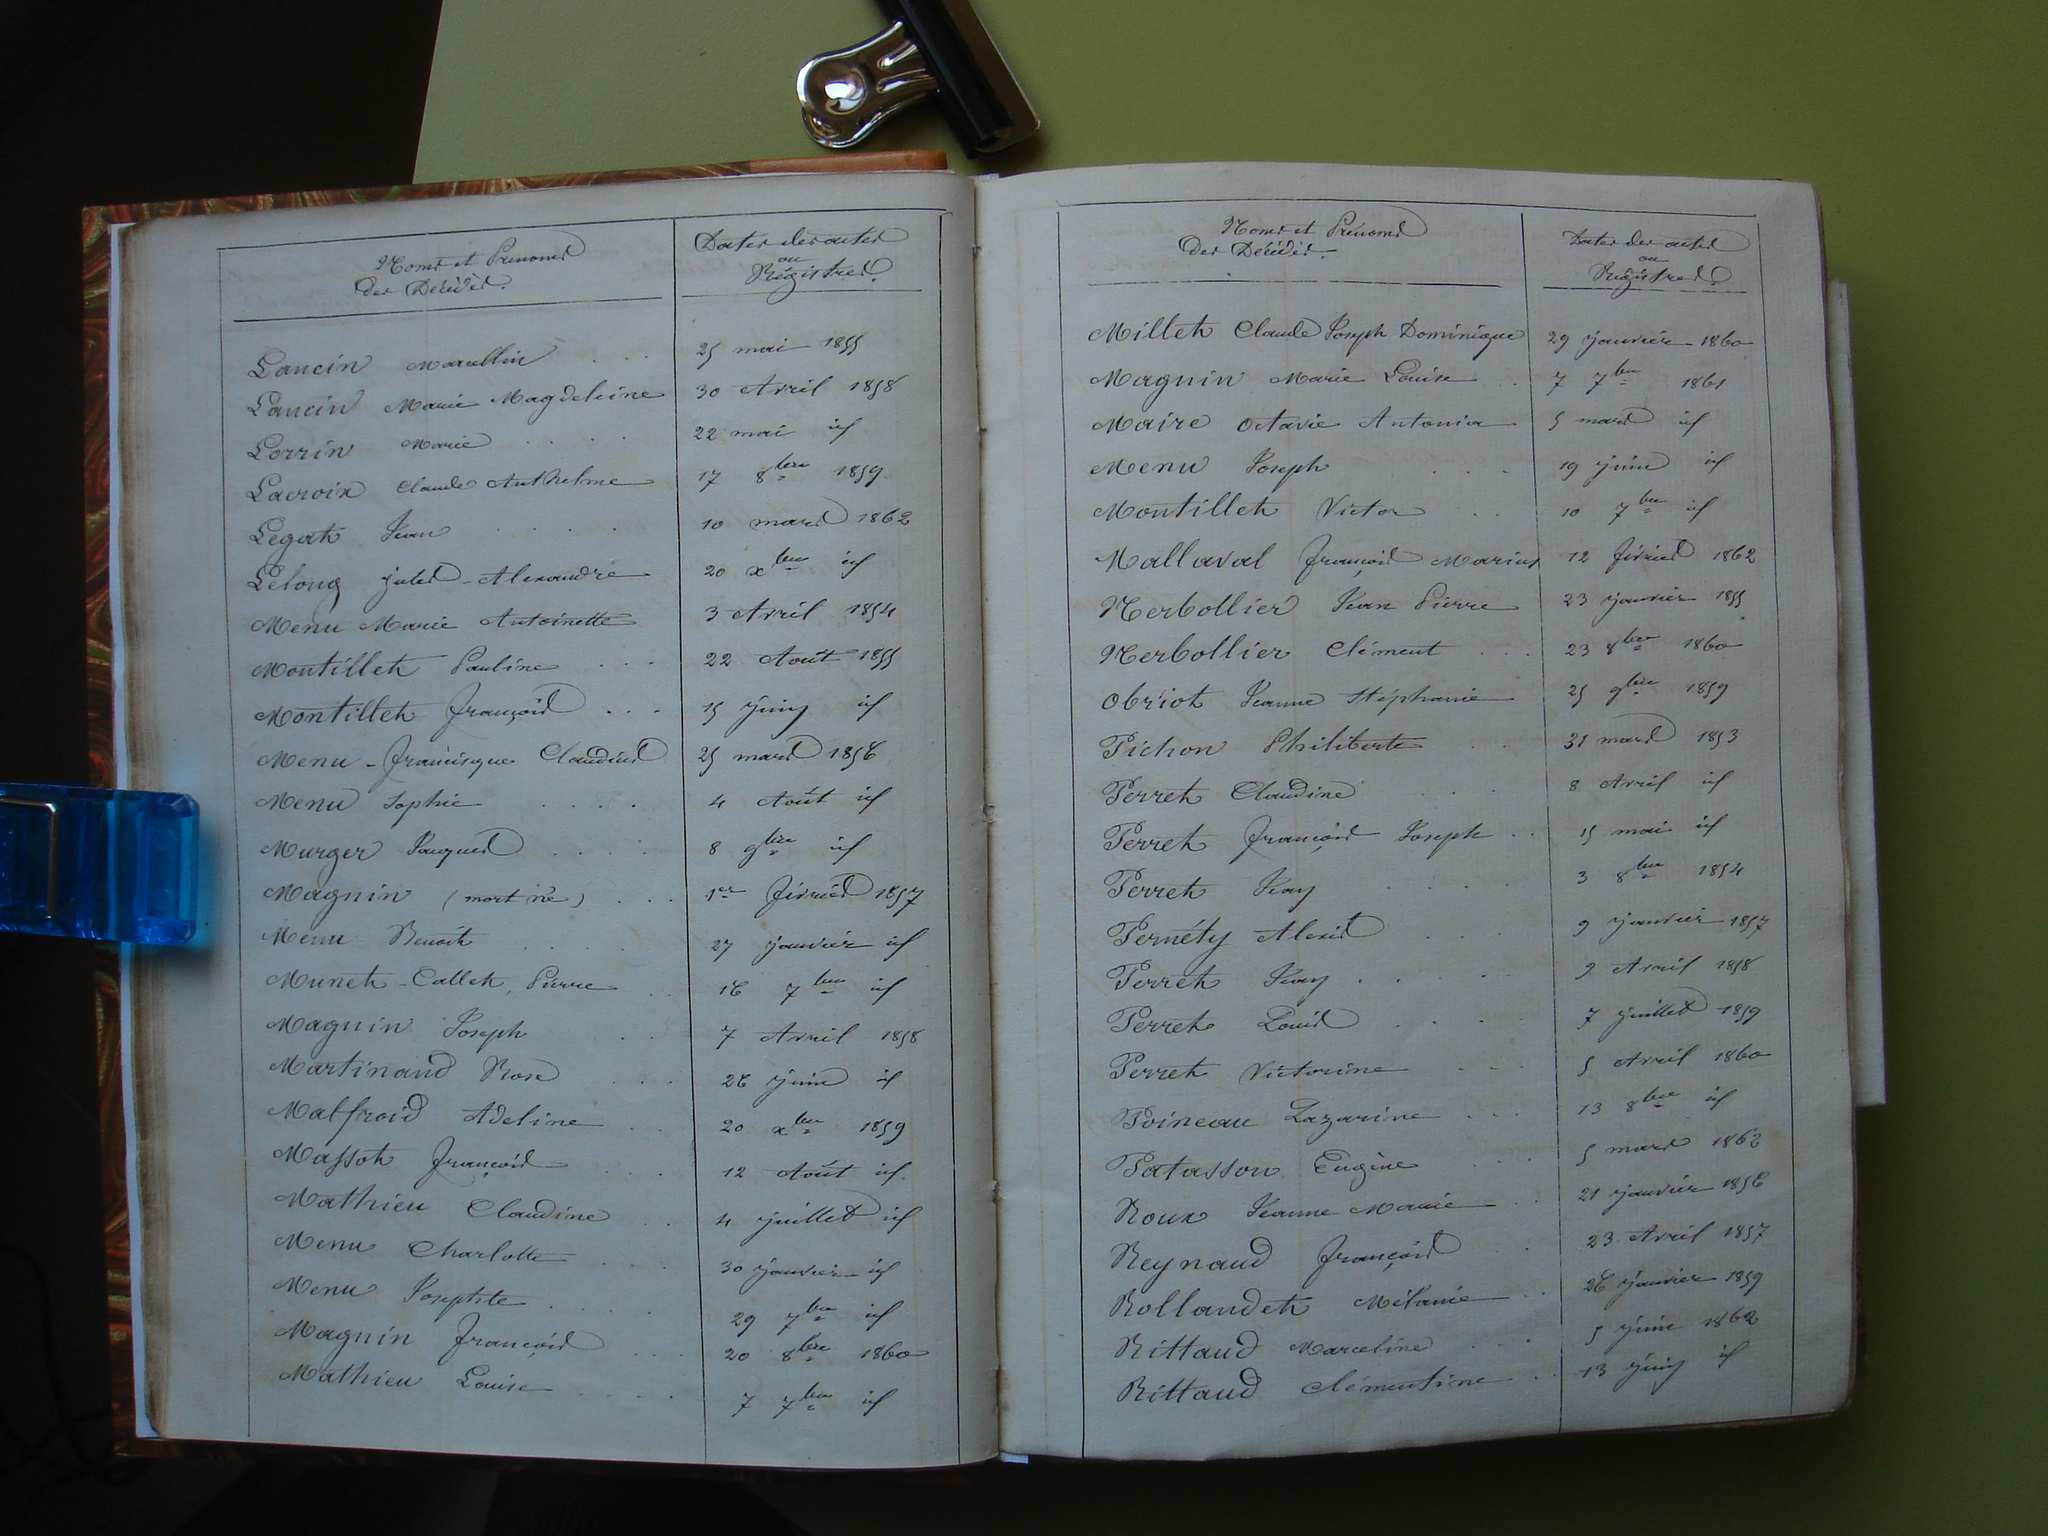 Noms et Prenoms
des Décédés.
Dates des actes
ou
Régistres.
Lancin Marcellin . . . 25 mai 1855
Lancin Marie Magdeleine 30 Avril 1858
Lorrin Marie . . . . 22 mai id
Lacroix Claude Anthelme 17 8bre 1859
Legat Jean . . . . 10 mars 1862
Lelong jules Alexandre 20 xbre id
Menu Marie Antoinette 3 Avril 1854
Montillet Pauline . . . 22 Août 1855
Montillet françois . . . 15 juin id
Menu - francisque Claudius 25 mars 1856
Menu Sophie . . . . 4 Août id
Murger Jacques . . . . 8 9bre id
Magnin (mort né) . . . 1er février 1857
Menu Benoît . . . . 27 janvier id
Munet-Collet, Pierre . . 16 7bre id
Magnin Joseph . . 7 Avril 1858
Martinand Rose . . . 26 juin id
Malfroid Adeline . . 20 xbre 1859
Massot françois . . . 12 Août id.
Mathieu Claudine . . 4 juillet id
Menu Charlotte . . . 30 janvier id
Menu Josephte . . . . 29 7bre id
Magnin françois . . . 20 8bre 1860
Mathieu Louise . . . . 7 7bre id
Noms et Prénoms
des Décédés.
Dates des actes
ou
Régistres.
Millet Claude Joseph Dominique 29 janvier 1860
Magnin Marie Louise . 7 7bre 1861
Maire Octavie Antonia 5 mars id
Menu Joseph . . . 19 juin id
Montillet Victor . . 10 7bre id
Mallaval françois Marius 12 février 1862
Nerbollier Jean Pierre 23 janvier 1855
Nerbollier Clément . . . 23 8bre 1860
Obriot Jeanne Stéphanie 25 9bre 1859
Pichon Philiberte . . 31 mars 1853
Perret Claudine . . . 8 Avril id
Perret françois Joseph . . 15 mai id
Perret Jean . . . . 3 8bre 1854
Pernéty Alexis . . . 9 janvier 1857
Perret Jean . . . . 2 Avril 1858
Perret Louis . . . . 7 juillet 1859
Perret Victorine . . . 5 Avril 1860
Poineau Lazarine . . . 13 8bre id
Patasson Eugène . . . 5 mars 1862
Roux Jeanne Marie . . 21 janvier 1856
Reynaud françois . . 23 Avril 1857
Rollandet Mélanie . . 26 janvier 1859
Rittaud Marceline . . . 5 juin 1862
Rittaud Clémentine . . 13 juin id